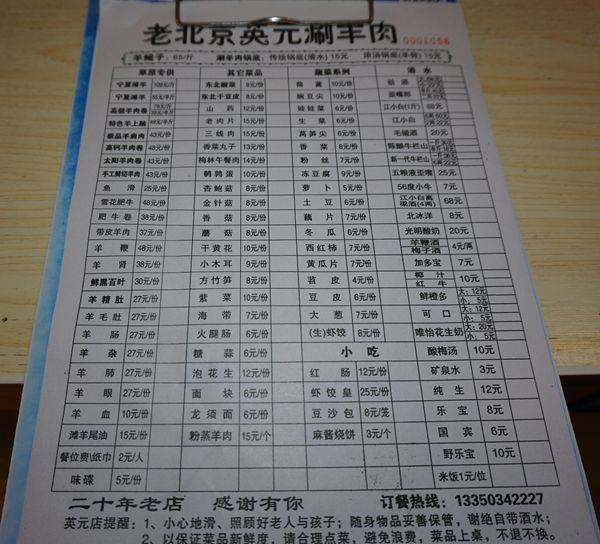 老北京英元涮羊肉
0001056
羊蝎子：65/斤 涮羊肉锅底：传统锅底(清水) 15元 滚汤锅底(羊骨) 15元
草原专供 其它菜品 蔬菜系列 酒水
宁夏滩羊 109元/斤 东北酸菜 8元/份 茼蒿 10元/份
宁夏滩羊 55元/半斤 东北干豆皮 8元/份 豌豆尖 10元/份 歪嘴郎
高级羊肉卷 山药 12元/份 娃娃菜 6元/份 江小白(1斤) 68元
特色羊上脑 老肉片 15元/份 生菜 6元/份 江小白
极品羊肩肉 43元/份 三线肉 15元/份 莴笋尖 6元/份 毛铺酒 20元
高钙羊肉卷 48元/份 香菜丸子 13元/份 香菜 8元/份 陈酿牛栏山
太阳羊肉卷 43元/份 梅林午餐肉 14元/份 粉丝 7元/份 新一代牛栏山
手工鲜切羊肉 43元/份 鹌鹑蛋 10元/份 冻豆腐 9元/份 五粮液歪嘴 25元
鱼滑 25元/份 杏鲍菇 8元/份 萝卜 5元/份 56度小牛 7元
雪花肥牛 48元/份 金针菇 8元/份 土豆 6元/份 江小白高粱酒(4两) 68元
肥牛卷 38元/份 香菇 8元/份 藕片 7元/份 北冰洋 8元
带皮羊肉 37元/份 蘑菇 8元/份 冬瓜 6元/份 光明酸奶 20元
羊鞭 48元/份 干黄花 10元/份 西红柿 7元/份 羊鞭酒 梅子酒 4元/两
羊肾 38元/份 小木耳 9元/份 黄瓜片 7元/份 加多宝 7元
鲜黑百叶 30元/份 方竹笋 8元/份 苕皮 4元/份 椰汁 红牛 10元
羊精肚 27元/份 紫菜 10元/份 豆皮 6元/份 鲜橙多 大：12元 小：5元
羊毛肚 27元/份 海带 7元/份 大葱 7元/份 可口 大：12元 小：5元
羊肠 34元/份 火腿肠 6元/份 (生)虾饺 8元/份 唯怡花生奶 大：20元 小：5元
羊杂 27元/份 糖蒜 6元/份 小吃 酸梅汤 10元
羊肺 27元/份 泡花生 12元/份 红肠 12元/份 矿泉水 3元
羊眼 27元/份 面块 6元/份 虾饺皇 25元/份 纯生 12元
羊血 10元/份 龙须面 6元/份 豆沙包 8元/笼 乐宝 8元
滩羊尾油 15元/份 粉蒸羊肉 15元/个 麻酱烧饼 3元/个 国宾 6元
餐位费\纸巾 2元/人 野乐宝 10元
味碟 5元/份 米饭1元/位
二十年老店 感谢有你 订餐热线：13350342227
英元店提醒：1、小心地滑、照顾好老人与孩子；随身物品妥善保管，谢绝自带酒水；
2、以保证菜品新鲜度，请合理点菜，避免浪费，菜品上桌，不退不换。